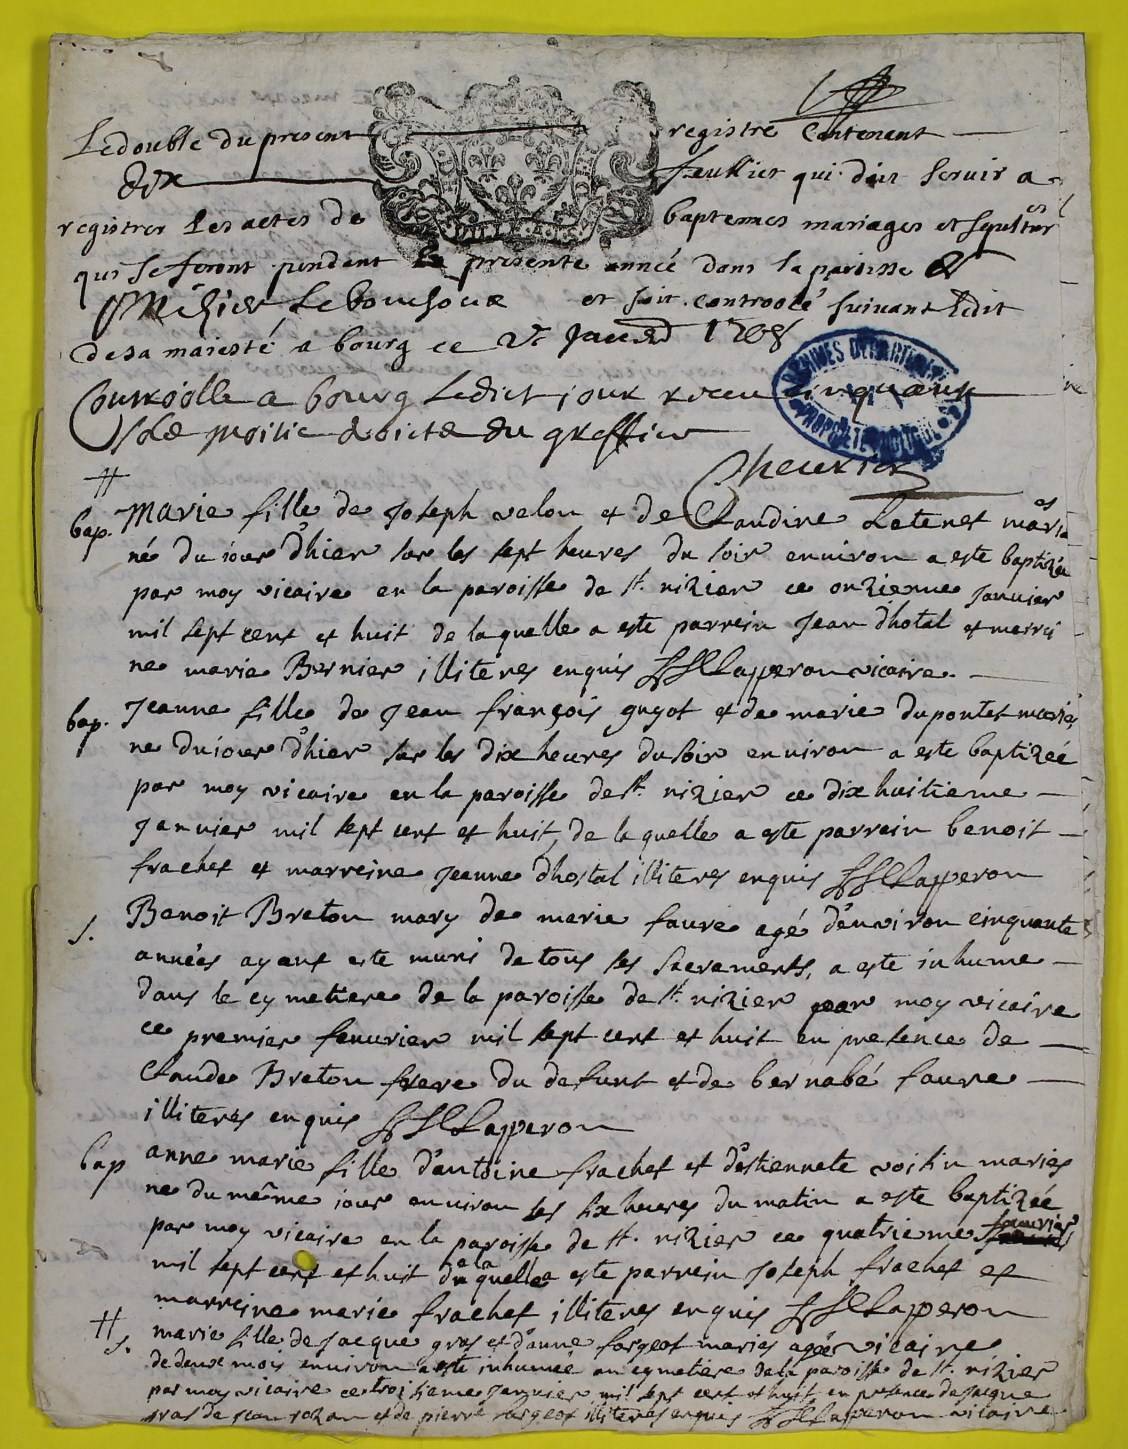 Le double du present registre Contenant
dix feulliet qui doit servir a
registrer les actes de baptemes mariages et sepultures
qui se feront pendent la presente année dans la paroisse de
St Nizier Le bouchoux et soit controolé suivant ledit
de sa majesté a bourg ce Janv 1708
Controolle a bourg Ledict jour receu cinquante
sols moitie droicts du greffier
Chevrier
bap. Marie fille de Joseph velon et de Claudine Letenet mariés
né du jour d'hier sur les sept heures du soir environ a esté baptizée
par moy vicaire en la paroisse de st. nizier ce onzieme Janvier
mil sept cent et huit de laquelle a esté parrein Jean d'hotal et marrei
ne marie Bernier illiteres enquis Lapperon vicaire.
bap. Jeanne fille de Jean françois guyot et de marie dupontet mariés
né du jour d'hier sur les dix heures du soir environ a esté baptizeé
par moy vicaire en la paroisse de st. nizier ce dix huitieme
Janvier mil sept cent et huit, de laquelle a esté parrein benoit
frachet et marreine Jeanne dhostal illiteres enquis Lapperon
s. Benoit Breton mary de marie faure agé d'environ cinquante
années ayant esté muni de tous ses sacrements, a esté inhumé
dans le cymetiere de la paroisse de st. nizier par moy vicaire
ce premier fevvrier mil sept cent et huit en presence de
Claude Breton frere du defunt et de bernabé faure
illiteres enquis Lapperon
bap anne marie fille d'antoine frachet et d'estiennete voisin mariés
né du même jour environ les six heures du matin a esté baptizée
par moy vicaire en la paroisse de st. nizier ce quatrieme fevvrier
mil sept cent et huit de laquelle a esté parrein Joseph frachet et
marreine marie frachet illiteres enquis Lapperon
vicaire
s. marie fille de Jacque gras et d'anne forgeot mariés agée
de deux mois environ a esté inhumée au cymetiere de la paroisse de st. nizier
par moy vicaire ce troisieme Janvier mil sept cent et huit en presence de Jacque
gras de Jean et de pierre forgeot illiteres enquis Lapperon vicaire